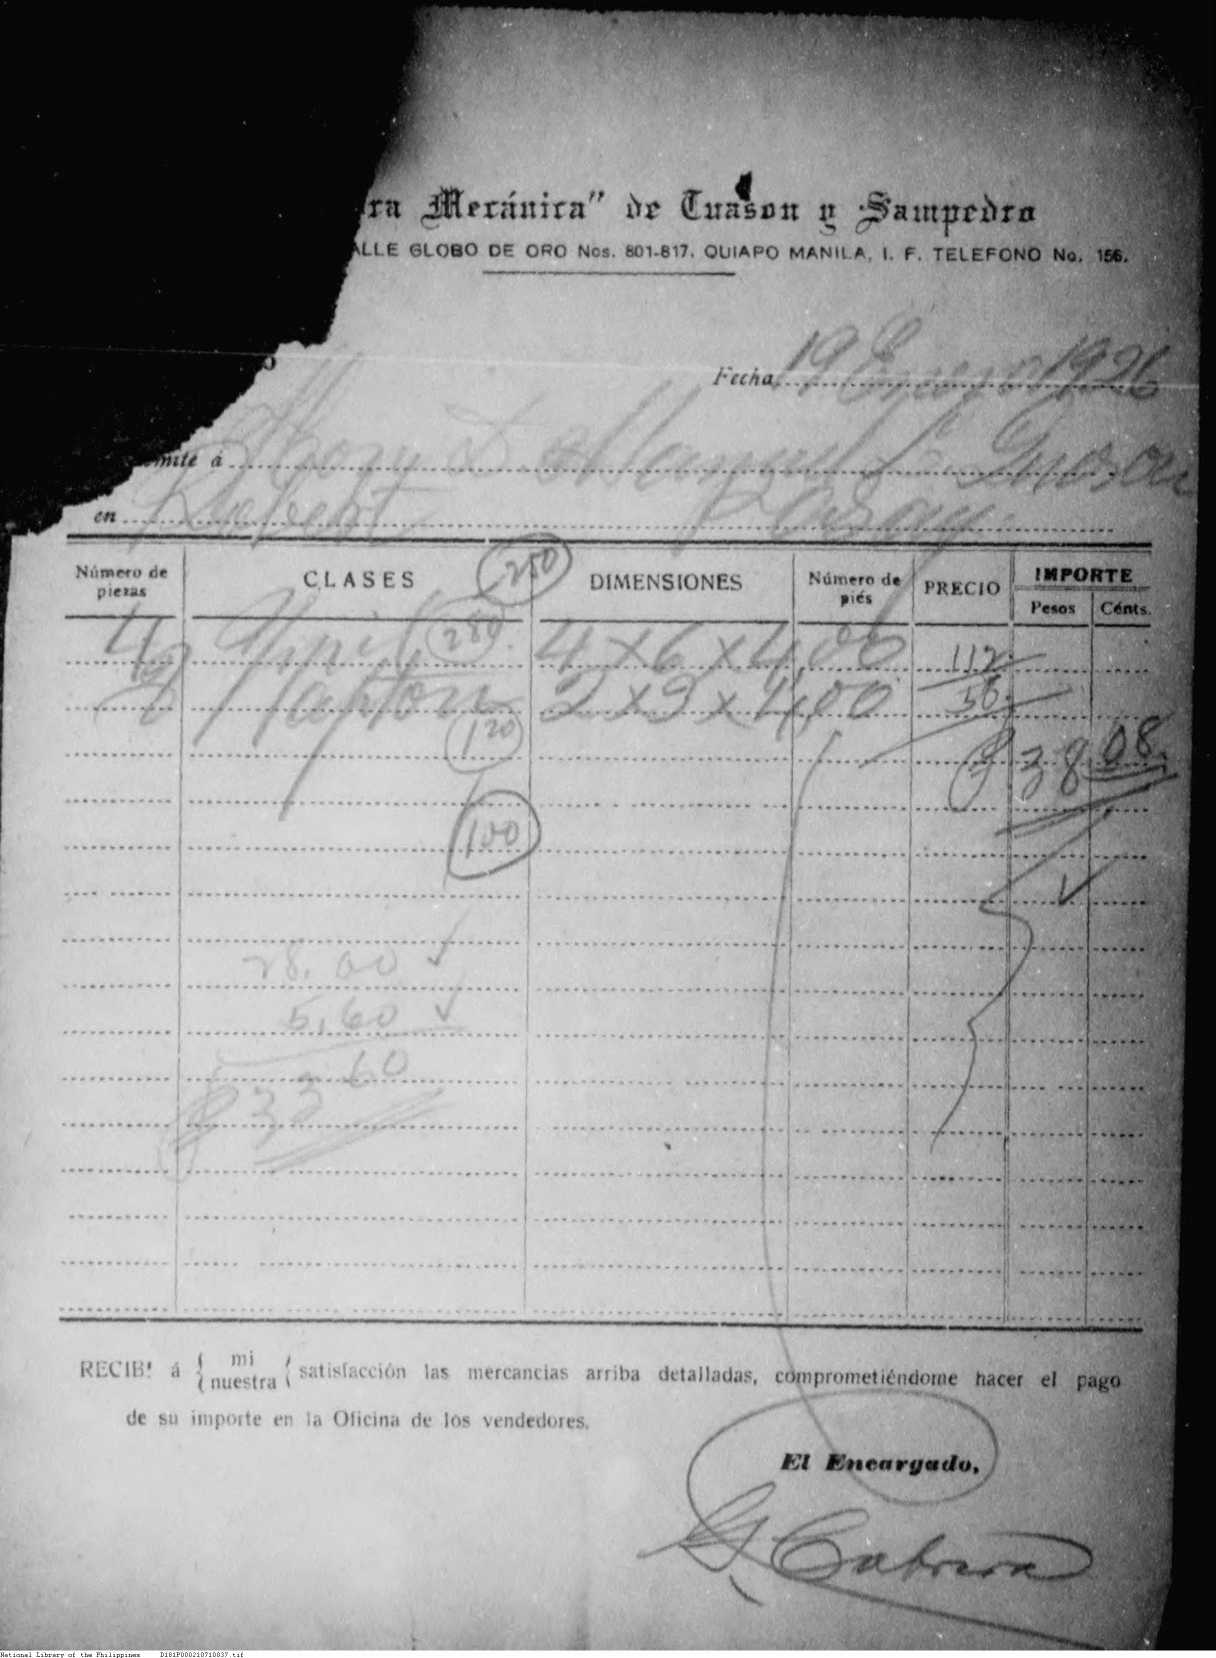 ra Mecánica" de Tuason y Sampedro
ALLE GLOBO DE ORO Nos. 801-817. QUIAPO MANILA, I. F. TELEFONO No. 156.
Fecha 19 Enero 1926
mite á Manuel Tuason
en
Número de piezas CLASES 250 DIMENSIONES Número de piés PRECIO IMPORTE
Pesos Cénts.
4 280 4 x 6 x 4,00 112
2 x 3 x 4,00 56
120 ₱ 38 08
100
28.00 ✓
5,60 ✓
₱ 33 60
RECIBI á { mi nuestra { satisfacción las mercancias arriba detalladas, comprometiéndome hacer el pago
de su importe en la Oficina de los vendedores.
El Encargado,
G. Cabrera
National Library of the Philippines D181P000210710837.tif